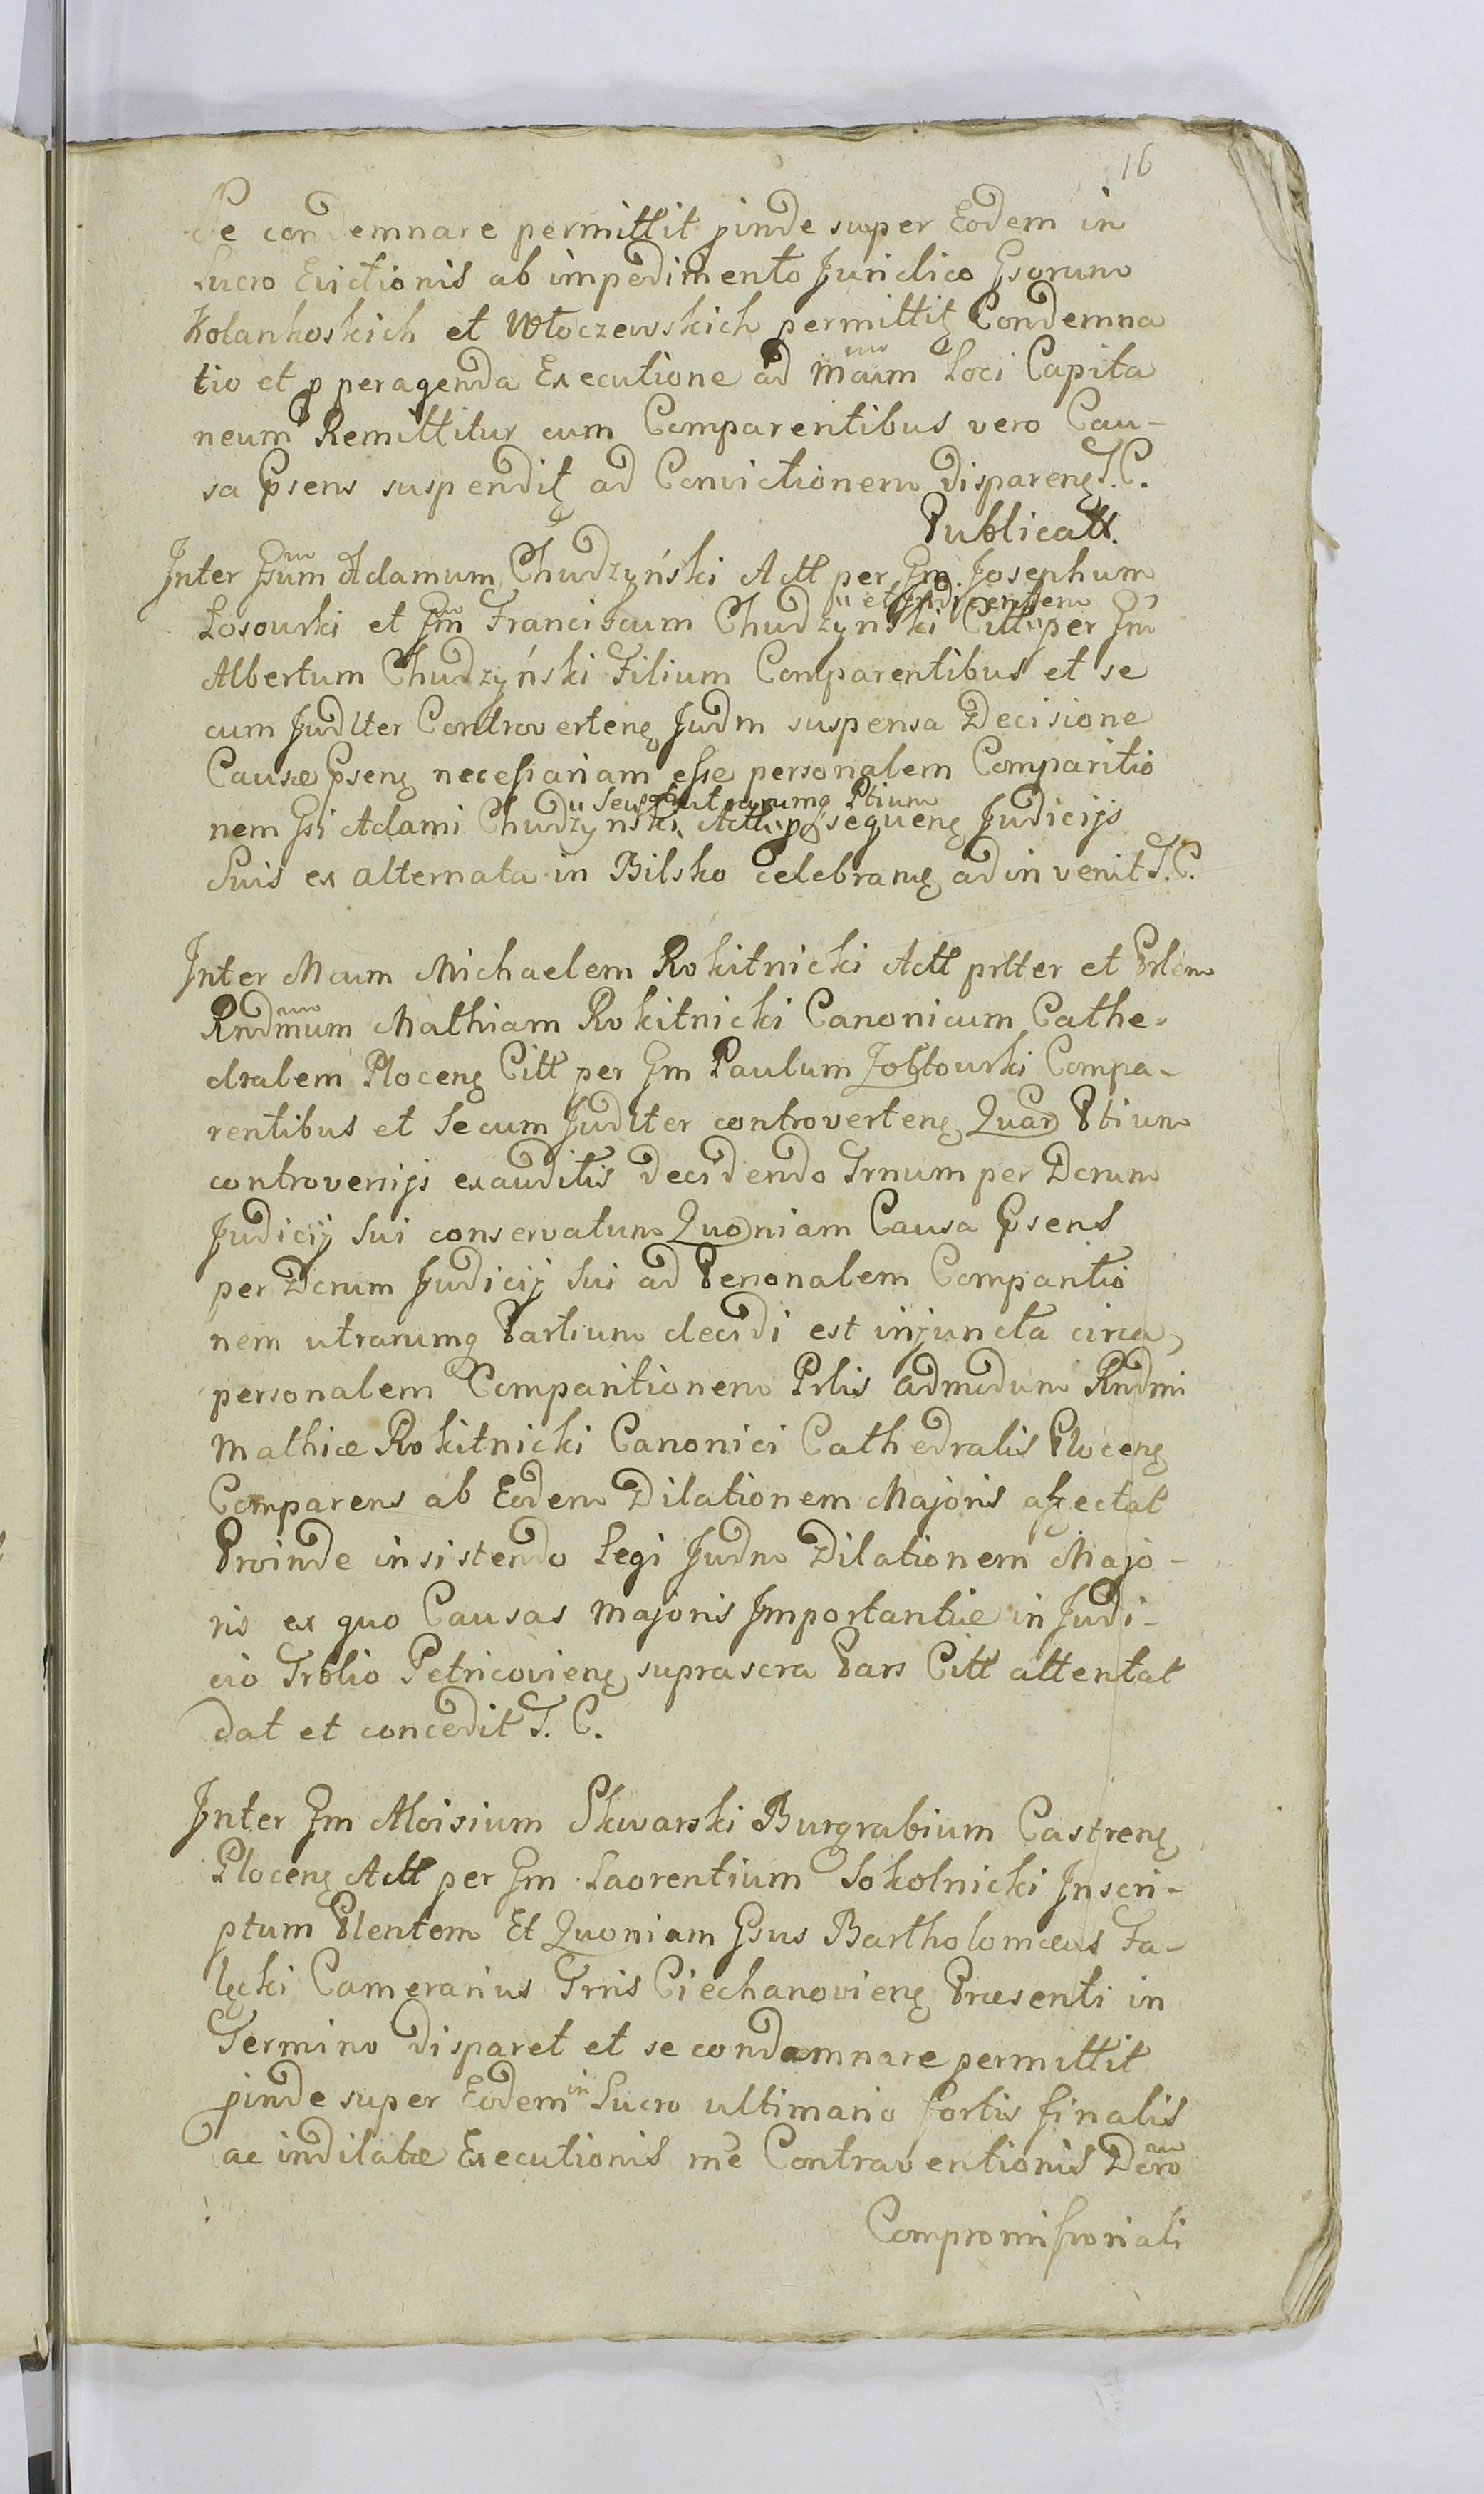 16
Se condemnare permittit pinde super Eodem in
Lucro Evictionis ab impedimento Juridico Gsorum
Kolankoskich et Włoczewskich permittitę Condemna
tio et p peragenda Executione ad Maum Loci Capita
neum Remittitur cum Comparentibus vero Cau-
sa Psens suspenditę ad Convictionem Disparenę T. C.
Publicatt.
Inter Gsum Adamum Chudzyński Actt per Gm. Josephum
Losowski et Gm Franciscum Chudzyński Citt per Gm
Albertum Chudzyński Filium Comparentibus et se
cum Judlter Controvertenę Judm suspensa Decisione
Causæ Psenę necessariam esse personalem Comparitio
" seu utrarumq Ptium
nem Gsi Adami Chudzyński Actt p sequenę Judicijs
Suis ex alternata in Bilsko celebranę adinvenit T. C.
Inter Maum Michaelem Rokitnicki Actt prtter et Prlem
Rndmum Mathiam Rokitnicki Canonicum Cathe-
dralem Plocenę Citt per Gm Paulum Zołtowski Compa-
rentibus et Secum Judlter controvertenę Quar Ptium
controversijs exauditis decidendo Trnum per Dcrum
Judicij sui conservatum Quoniam Causa Psens
per Dcrum Judicij Sui ad Personalem Comparitio
nem utrarumq Partium decidi est injuncta circa
personalem Comparitionem Prlis admodum Rndmi
Mathiæ Rokitnicki Canonici Cathedralis Plocenę
Comparens ab Eodem Dilationem Majoris affectat
Proinde insistendo Legi Judm Dilationem Majo-
ris ex quo Causas Majoris Importantiæ in Judi-
cio Trblio Petricovienę suprascra Pars Citt attentat
dat et concedit T. C.
Inter Gm Aloisium Skwarski Burgrabium Castrenę
Plocenę Actt per Gm Laorentium Sokolnicki Inscri-
ptum Plentem Et Quoniam Gsus Bartholomæus Fa-
lęcki Camerarius Trris Ciechanovienę Præsenti in
Termino disparet et se condamnare permittit
pinde super Eodem in Lucro ultimario fortis finalis
ac indilatæ Executionis me Contraventionis Dcro
Compromissoriali